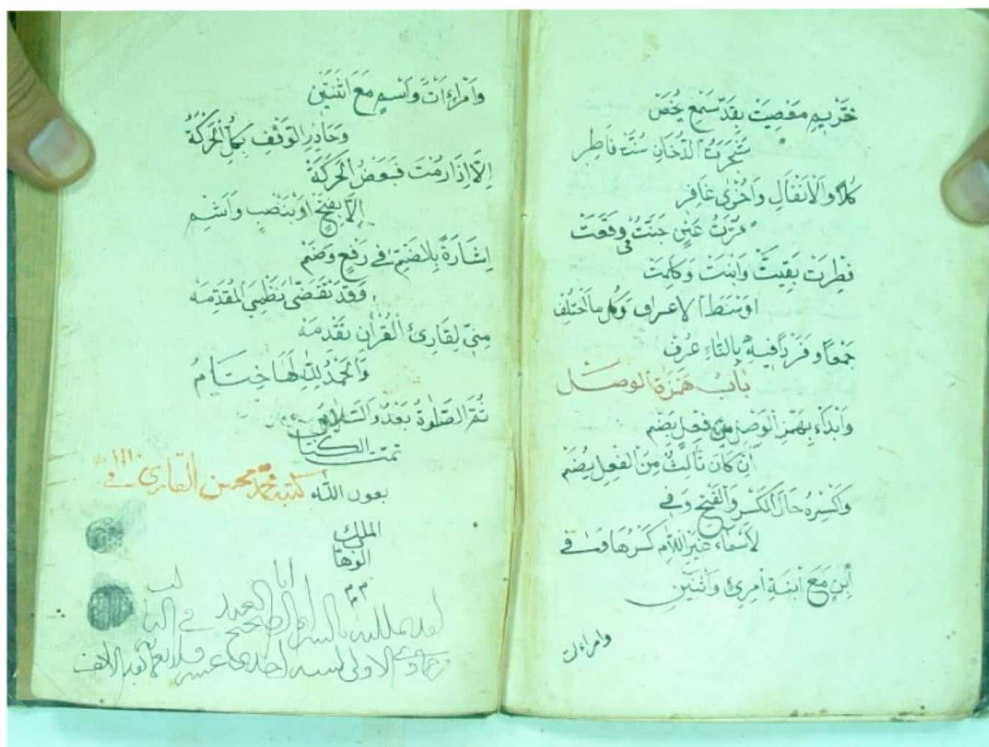 تَحْرِيمِ مَعْصِيَتْ بِقَدْ سَمِعْ يُخَصْ
شَجَرَتَ الدُّخَانِ سُنَّتْ فَاطِرِ
كُلًّا وَالْاَنْفَالِ وَاُخْرٰى غَافِرِ
قُرَّتُ عَيْنٍ جَنَّتْ فِى وَقَعَتْ
فِطْرَتْ بَقِيَّتْ وَابْنَتْ وَكَلِمَتْ
اَوْسَطَ الْاَعْرَافِ وَكُلُّ مَا اخْتُلِفْ
جَمْعًا وَفَرْدًا فِيهِ بِالتَّاءِ عُرِفْ
بَابُ هَمْزَةِ الْوَصْلِ
وَابْدَاْ بِهَمْزِ الْوَصْلِ مِنْ فِعْلٍ بِضَمْ
اِنْ كَانَ ثَالِثٌ مِنَ الْفِعْلِ يُضَمْ
وَاكْسِرْهُ حَالَ الْكَسْرِ وَالْفَتْحِ وَفِى
لَاَسْمَاءِ غَيْرِ اللَّامِ كَسْرُهَا وَفِى
اِبْنٍ مَعَ ابْنَةِ امْرِئٍ وَاثْنَيْنِ
وامراءت
وَامْرَاَةٍ وَاسْمٍ مَعَ اثْنَتَيْنِ
وَحَاذِرِ الْوَقْفَ بِكُلِّ الْحَرَكَةْ
اِلَّا اِذَا رُمْتَ فَبَعْضُ الْحَرَكَةْ
اِلَّا بِفَتْحٍ اَوْ بِنَصْبٍ وَاَشِمْ
اِشَارَةً بِالضَّمِّ فِى رَفْعٍ وَضَمْ
وَقَدْ تَقَضّٰى نَظْمِىَ الْمُقَدِّمَهْ
مِنِّى لِقَارِئِ الْقُرْاٰنِ تَقْدِمَهْ
وَالْحَمْدُ لِلّٰهِ لَهَا خِتَامُ
ثُمَّ الصَّلٰوةُ بَعْدُ وَالسَّلَامُ
تمت الكتاب
بعون الله
كتبه محمد محسن القارى فى ١١١٠
الملك
الوهاب
م م